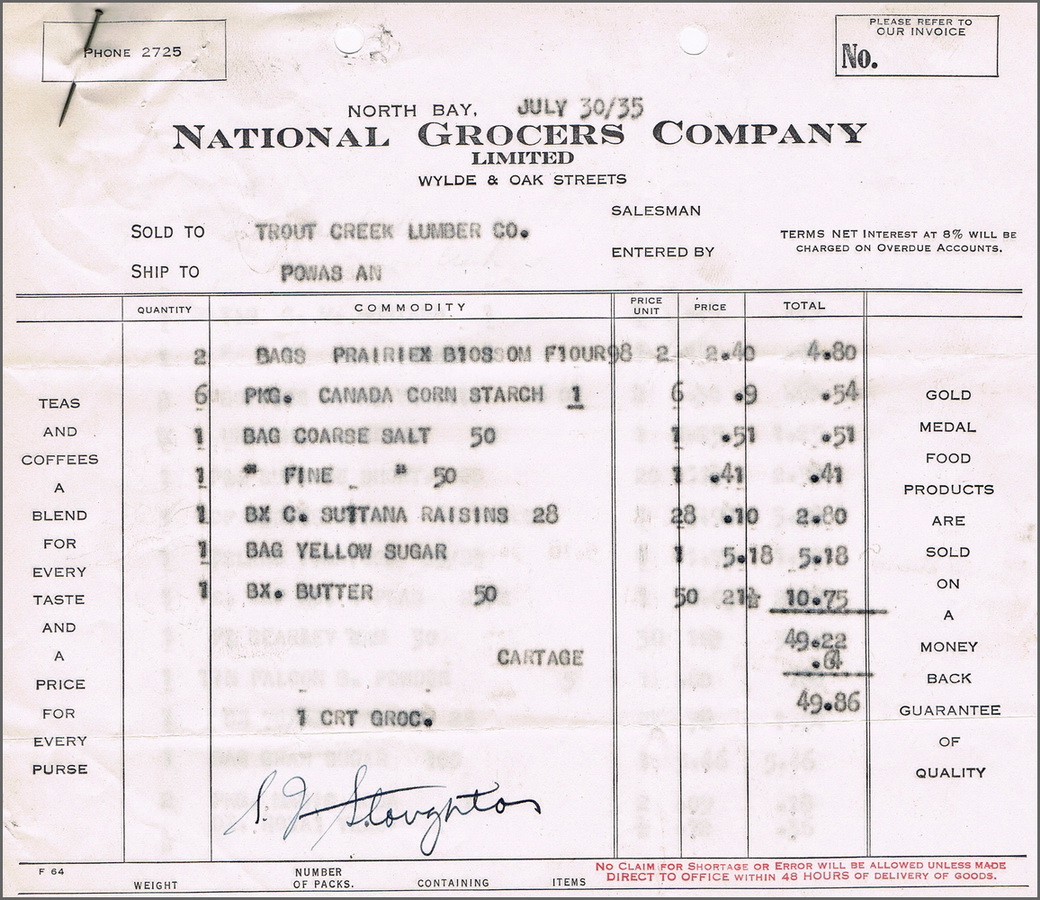 PHONE 2725
PLEASE REFER TO
OUR INVOICE
No.
NORTH BAY, JULY 30/35
NATIONAL GROCERS COMPANY
LIMITED
WYLDE & OAK STREETS
SALESMAN
SOLD TO TROUT CREEK LUMBER CO.
TERMS NET INTEREST AT 8% WILL BE
CHARGED ON OVERDUE ACCOUNTS.
ENTERED BY
SHIP TO POWAS AN
QUANTITY COMMODITY PRICE UNIT PRICE TOTAL
2 BAGS PRAIRIEX B10SSOM F10UR98 2 2.40 4.80
6 PKG. CANADA CORN STARCH 1 6 .9 .54
1 BAG COARSE SALT 50 1 .51 .51
1 " FINE " 50 1 .41 .41
1 BX C. SUTTANA RAISINS 28 28 .10 2.80
1 BAG YELLOW SUGAR 1 5.18 5.18
1 BX. BUTTER 50 50 21½ 10.75
49.22
CARTAGE .64
49.86
1 CRT GROC.
S. J. Stoughton
TEAS
AND
COFFEES
A
BLEND
FOR
EVERY
TASTE
AND
A
PRICE
FOR
EVERY
PURSE
GOLD
MEDAL
FOOD
PRODUCTS
ARE
SOLD
ON
A
MONEY
BACK
GUARANTEE
OF
QUALITY
F 64
WEIGHT
NUMBER
OF PACKS.
CONTAINING
ITEMS
NO CLAIM FOR SHORTAGE OR ERROR WILL BE ALLOWED UNLESS MADE
DIRECT TO OFFICE WITHIN 48 HOURS OF DELIVERY OF GOODS.